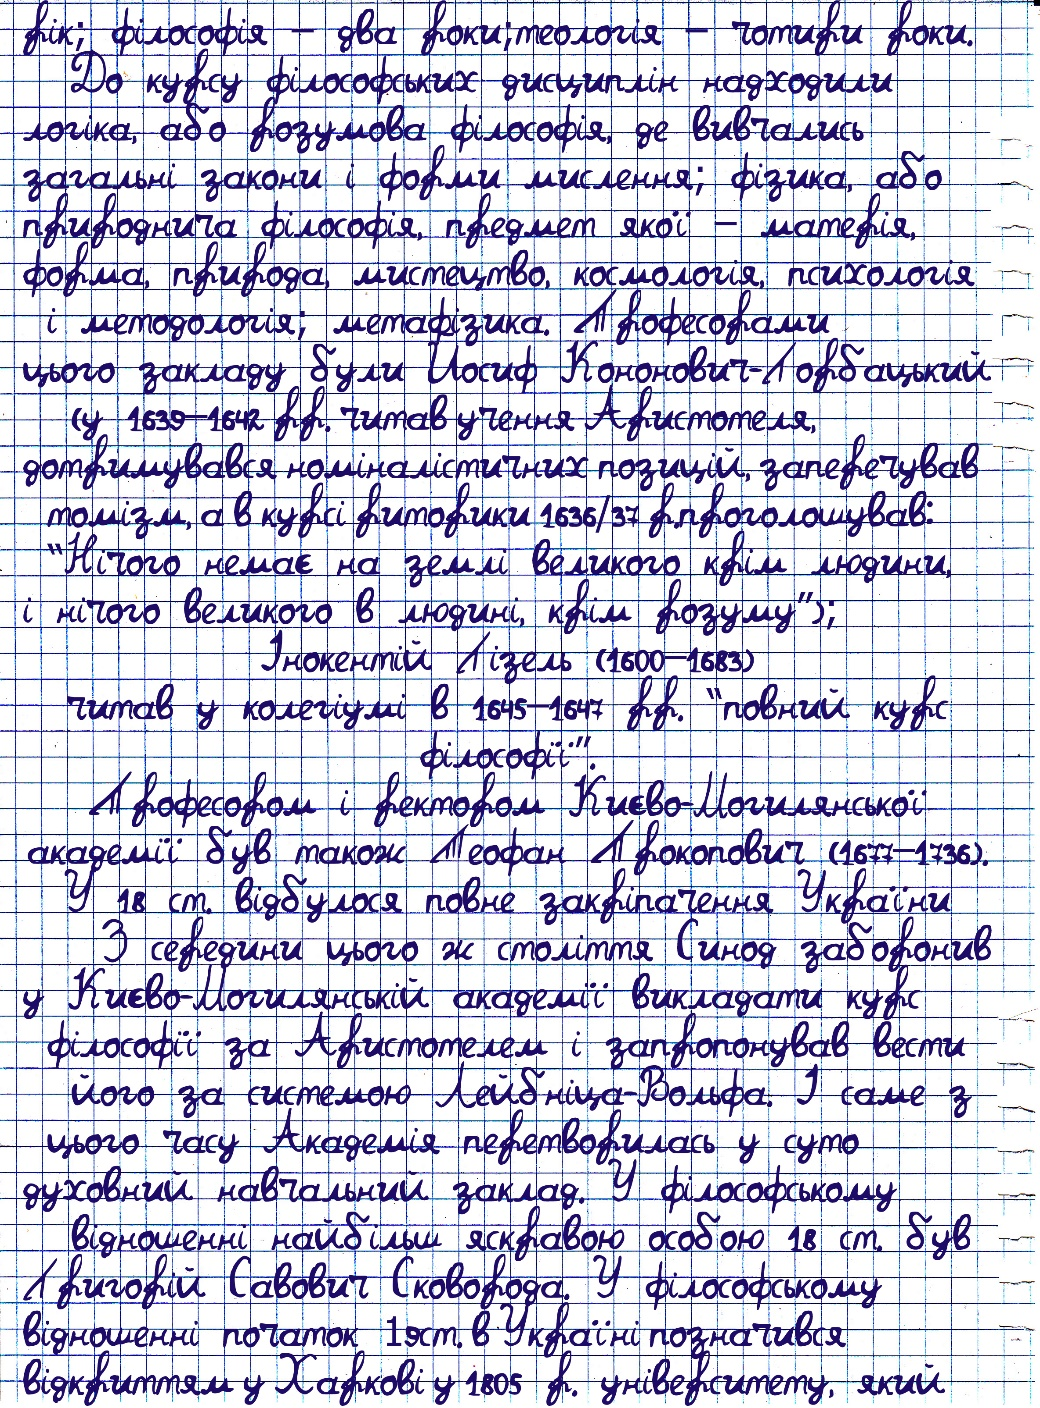 рік; філософія – два роки;теологія – чотири роки.
До курсу філософських дисциплін надходили
логіка, або розумова філософія, де вивчались
загальні закони і форми мислення; фізика, або
природнича філософія, предмет якої – матерія,
форма, природа, мистецтво, космологія, психологія
і методологія; метафізика. Професорами
цього закладу були Йосиф Кононович-Горбацький
(у 1639–1642 рр. читав учення Аристотеля,
дотримувався номіналістичних позицій, заперечував
томізм, а в курсі риторики 1636/37 р.проголошував:
“Нічого немає на землі великого крім людини,
і нічого великого в людині, крім розуму”);
Інокентій Гізель (1600–1683)
читав у колегіумі в 1645–1647 рр. “повний курс
філософії”.
Професором і ректором Києво-Могилянської
академії був також Теофан Прокопович (1677–1736).
У 18 ст. відбулося повне закріпачення України
З середини цього ж століття Синод заборонив
у Києво-Могилянській академії викладати курс
філософії за Аристотелем і запропонував вести
його за системою Лейбніца-Вольфа. І саме з
цього часу Академія перетворилась у суто
духовний навчальний заклад. У філософському
відношенні найбільш яскравою особою 18 ст. був
Григорій Савович Сковорода. У філософському
відношенні початок 19ст. в Україні позначився
відкриттям у Харкові у 1805 р. університету, який